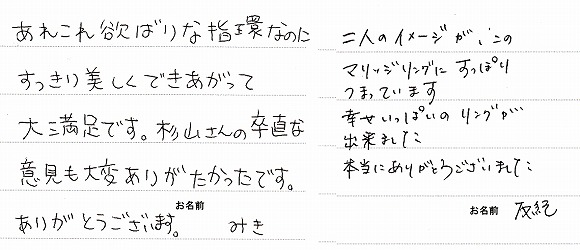 あれこれ欲ばりな指環なのに
すっきり美しくできあがって
大満足です。杉山さんの卒直な
意見も大変ありがたかったです。
ありがとうございます。
お名前 みき
二人のイメージが、この
マリッジリングに すっぽり
つまっています
幸せいっぱいの リングが
出来ました
本当にありがとうございました
お名前